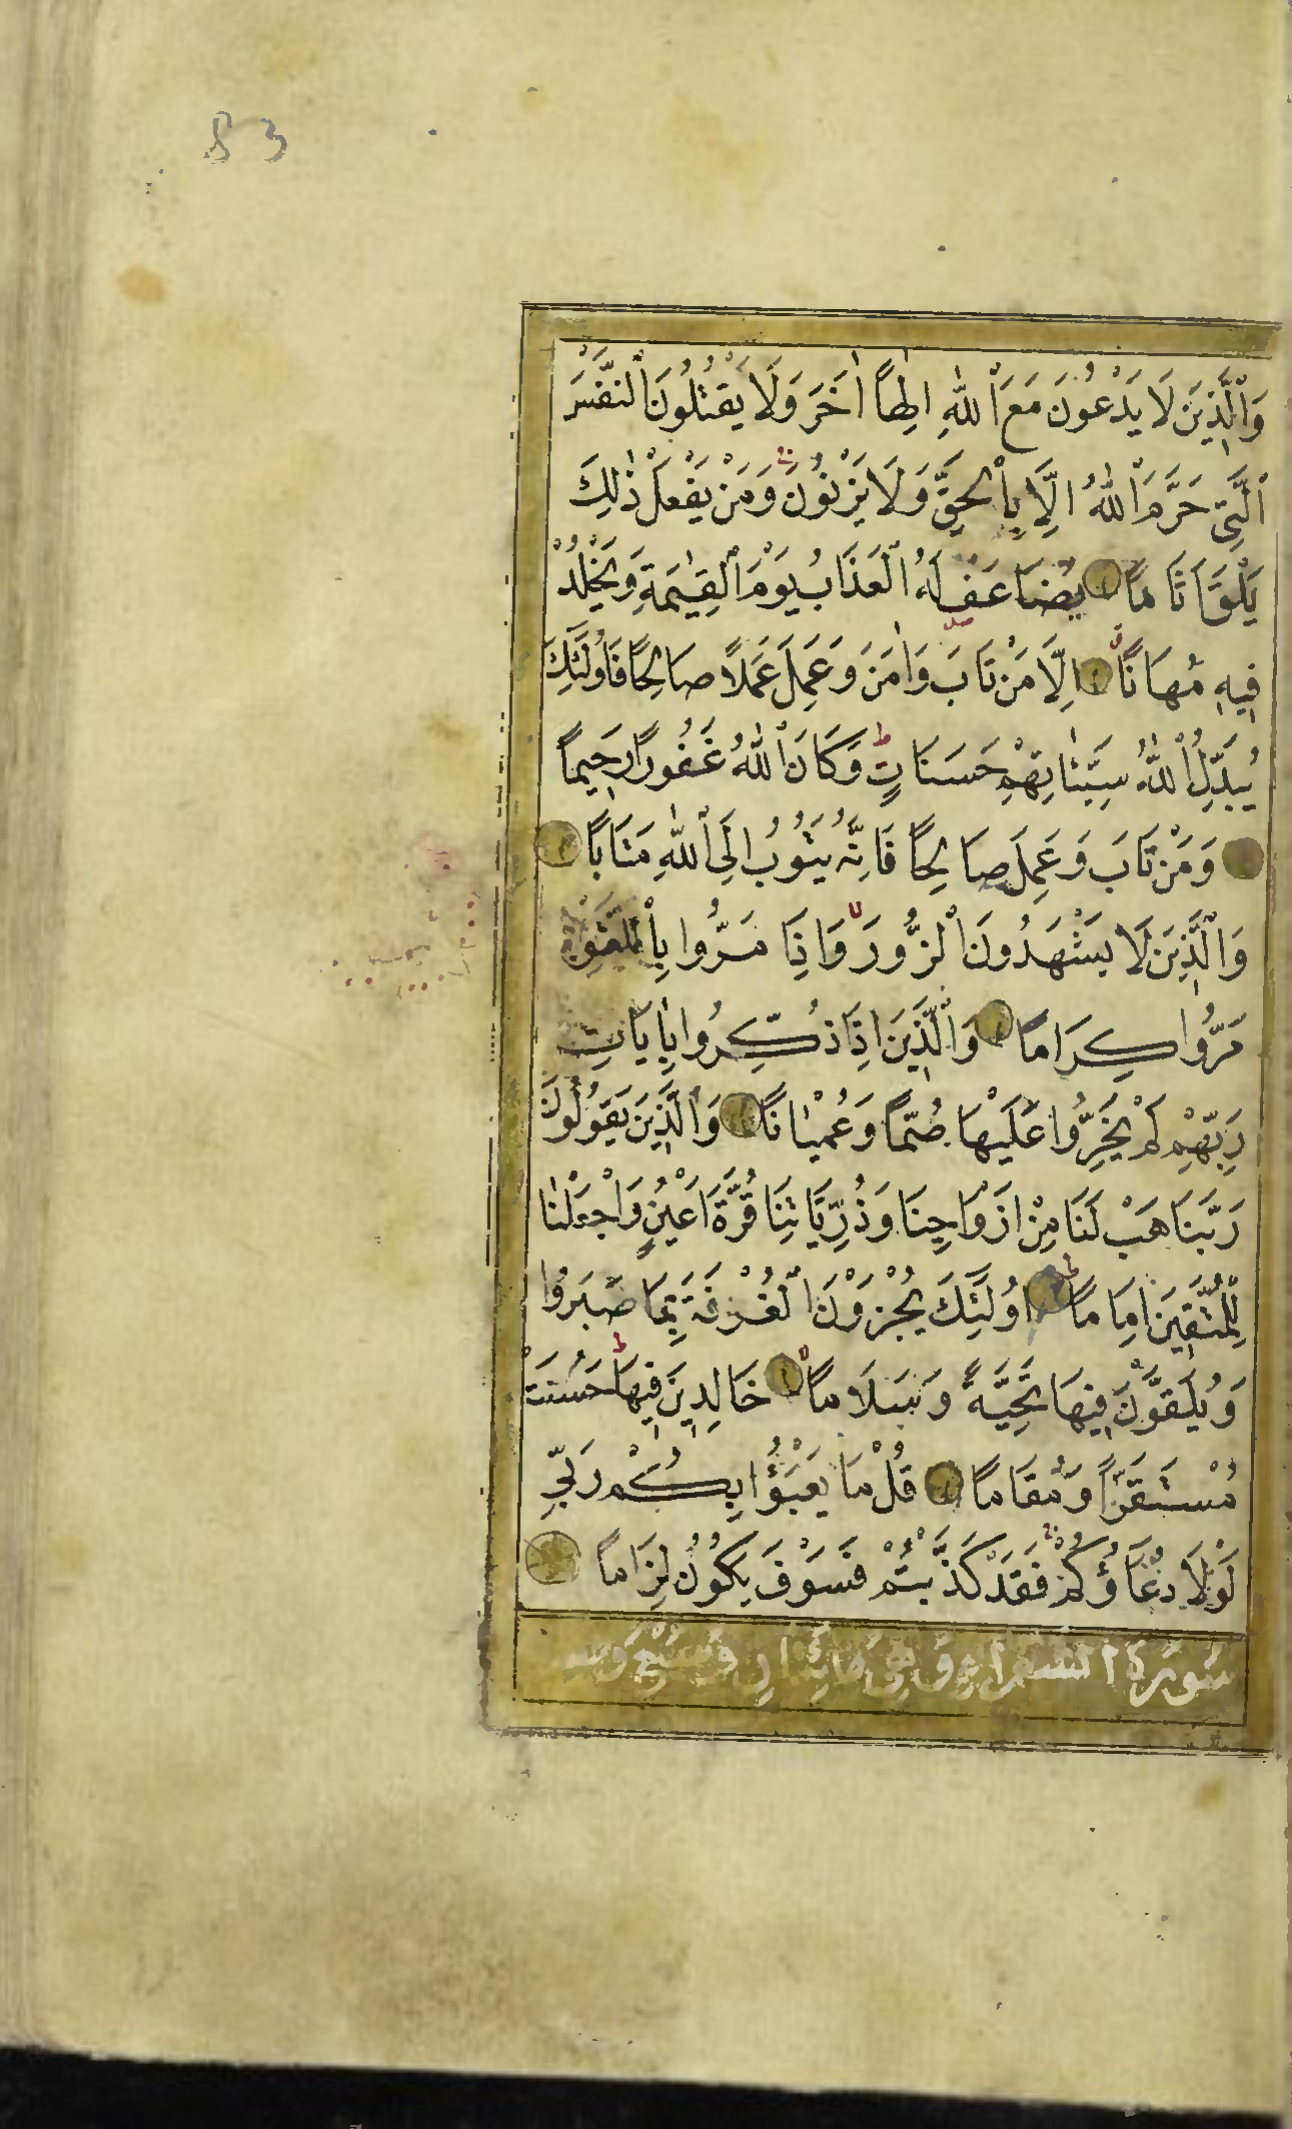 83
وَالَّذِينَ لَا يَدْعُونَ مَعَ اللّٰهِ اِلٰهًا اٰخَرَ وَلَا يَقْتُلُونَ النَّفْسَ
الَّتِي حَرَّمَ اللّٰهُ اِلَّا بِالْحَقِّ وَلَا يَزْنُونَ وَمَنْ يَفْعَلْ ذٰلِكَ
يَلْقَ اَثَامًا يُضَاعَفْ لَهُ الْعَذَابُ يَوْمَ الْقِيٰمَةِ وَيَخْلُدْ
فِيهِ مُهَانًا اِلَّا مَنْ تَابَ وَاٰمَنَ وَعَمِلَ عَمَلًا صَالِحًا فَاُولٰئِكَ
يُبَدِّلُ اللّٰهُ سَيِّئَاتِهِمْ حَسَنَاتٍ وَكَانَ اللّٰهُ غَفُورًا رَحِيمًا
وَمَنْ تَابَ وَعَمِلَ صَالِحًا فَاِنَّهُ يَتُوبُ اِلَى اللّٰهِ مَتَابًا
وَالَّذِينَ لَا يَشْهَدُونَ الزُّورَ وَاِذَا مَرُّوا بِاللَّغْوِ
مَرُّوا كِرَامًا وَالَّذِينَ اِذَا ذُكِّرُوا بِاٰيَاتِ
رَبِّهِمْ لَمْ يَخِرُّوا عَلَيْهَا صُمًّا وَعُمْيَانًا وَالَّذِينَ يَقُولُونَ
رَبَّنَا هَبْ لَنَا مِنْ اَزْوَاجِنَا وَذُرِّيَّاتِنَا قُرَّةَ اَعْيُنٍ وَاجْعَلْنَا
لِلْمُتَّقِينَ اِمَامًا اُولٰئِكَ يُجْزَوْنَ الْغُرْفَةَ بِمَا صَبَرُوا
وَيُلَقَّوْنَ فِيهَا تَحِيَّةً وَسَلَامًا خَالِدِينَ فِيهَا حَسُنَتْ
مُسْتَقَرًّا وَمُقَامًا قُلْ مَا يَعْبَؤُا بِكُمْ رَبِّي
لَوْلَا دُعَاؤُكُمْ فَقَدْ كَذَّبْتُمْ فَسَوْفَ يَكُونُ لِزَامًا
سُورَةُ الشعراء وَهِيَ مائتان وَسَبْع